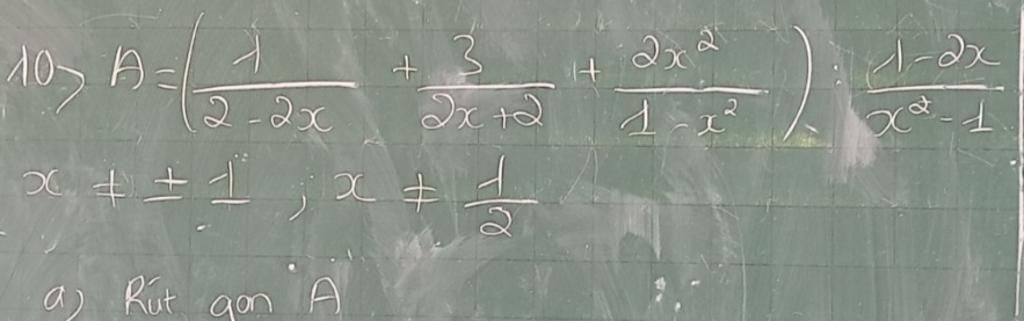 10> A = (1/(2-2x) + 3/(2x+2) + 2x²/(1-x²)) : (1-2x)/(x²-1)
x ≠ ± 1 ; x ≠ 1/2
a) Rút gọn A